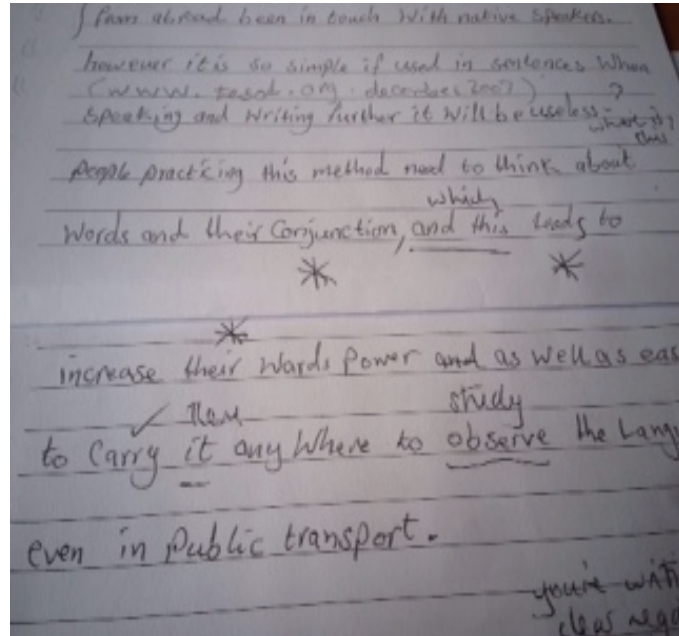 from abroad been in touch with native speakers.
however it is so simple if used in sentences when
(www.tesol.org.december2007) ?
speaking and writing further it will be useless-
what is
this
people practicing this method need to think about
which
words and their Conjunction, and this leads to
increase their words power and as well as eas
✓ them study
to Carry it any Where to observe the Lang
even in public transport.
you're